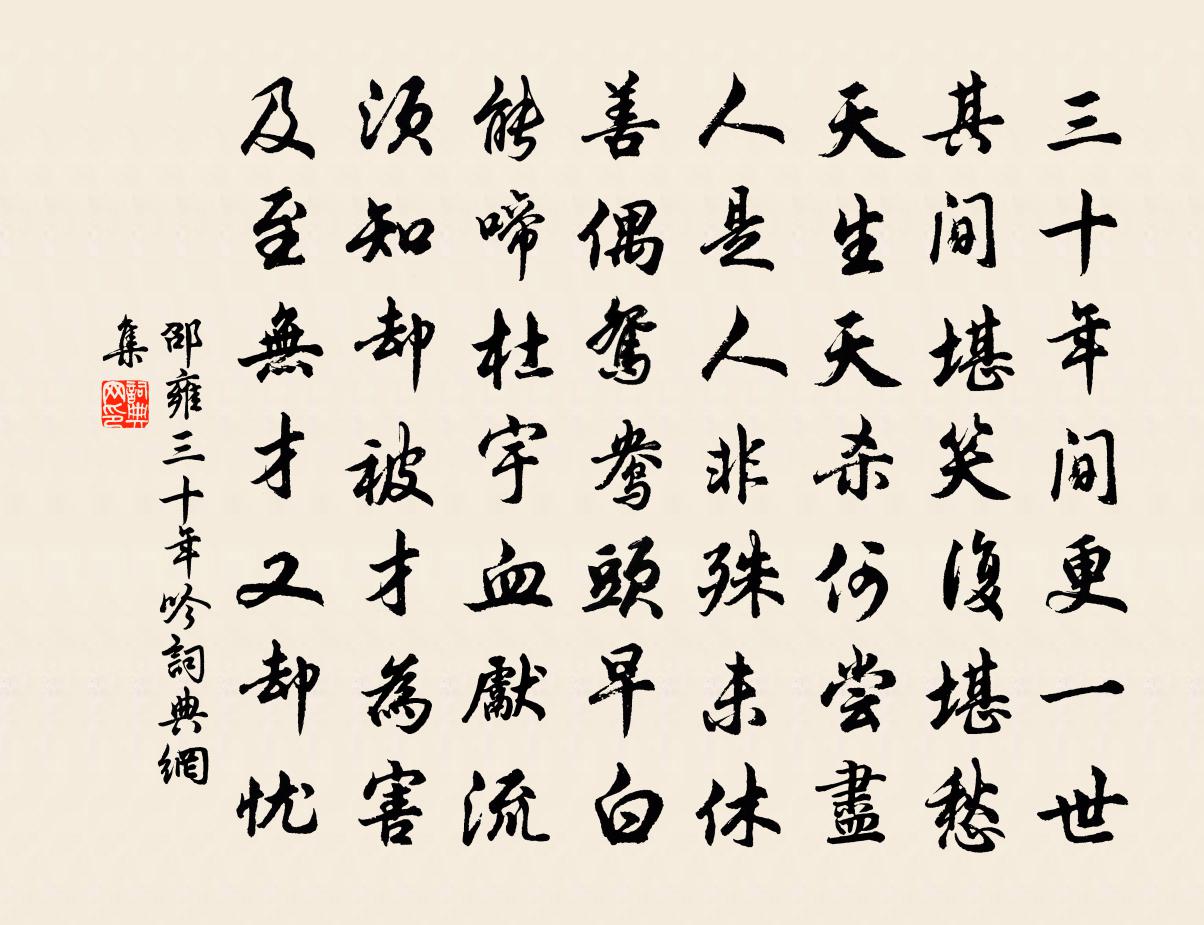 三十年间更一世
其间堪笑復堪愁
天生天杀何尝盡
人是人非殊未休
善偶鸳鸯頭早白
能啼杜宇血獻流
须知却被才為害
及至無才又却忧
邵雍三十年吟詞典網
集
詞典
网印